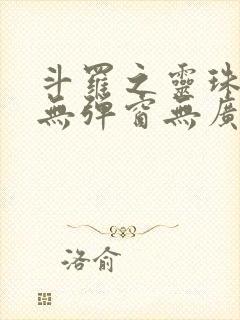 斗羅之靈珠
無彈窗無廣
洛俞